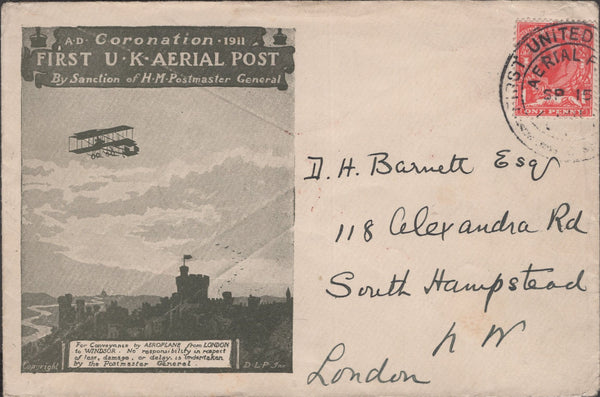 A·D· Coronation · 1911
FIRST U·K·AERIAL POST
By Sanction of H·M·Postmaster General
For Conveyance by AEROPLANE from LONDON
to WINDSOR. No responsibility in respect
of loss, damage, or delay, is undertaken
by the Postmaster General.
Copyright
D·L·P·
FIRST UNITED
AERIAL P
SP 15
ONE PENNY
D. H. Barnett Esq
118 Alexandra Rd
South Hampstead
N W
London